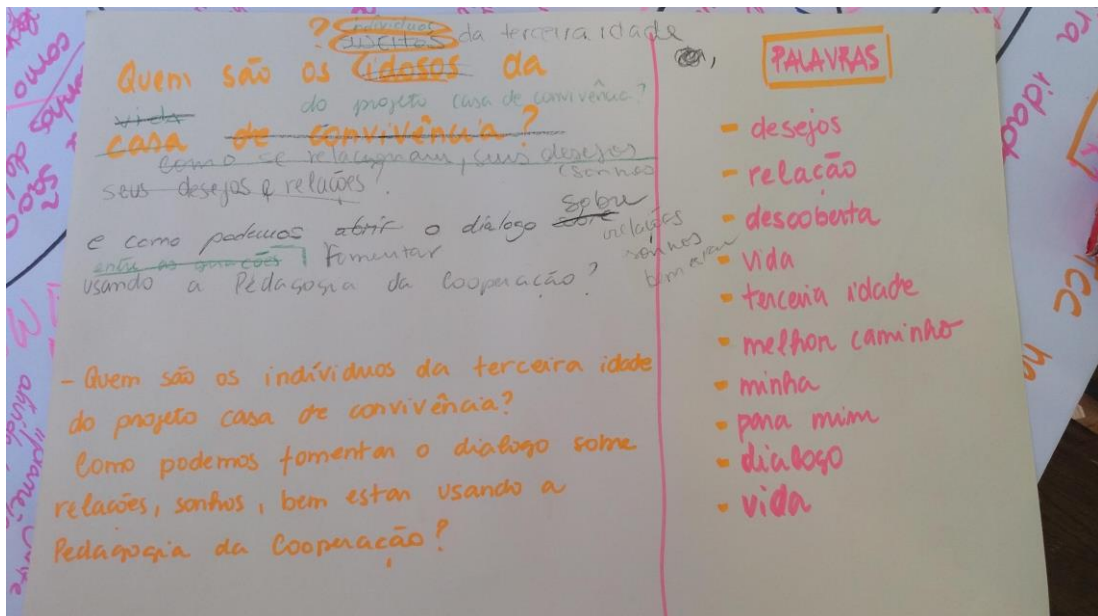 ? indivíduos
sujeitos da terceira idade
Quem são os idosos da
do projeto casa de convivência?
vida
casa de convivência?
como se relacionam, seus desejos
(sonhos
seus desejos e relações?
e como podemos abrir o diálogo sobre
entre as gerações fomentar
relações
sonhos
bem estar
usando a Pedagogia da Cooperação?
- Quem são os indivíduos da terceira idade
do projeto casa de convivência?
Como podemos fomentar o dialogo sobre
relações, sonhos, bem estar usando a
Pedagogia da Cooperação?
PALAVRAS
- desejos
- relação
- descoberta
- vida
- terceira idade
- melhor caminho
- minha
- para mim
- dialogo
- vida
idad
como
sonhos
São